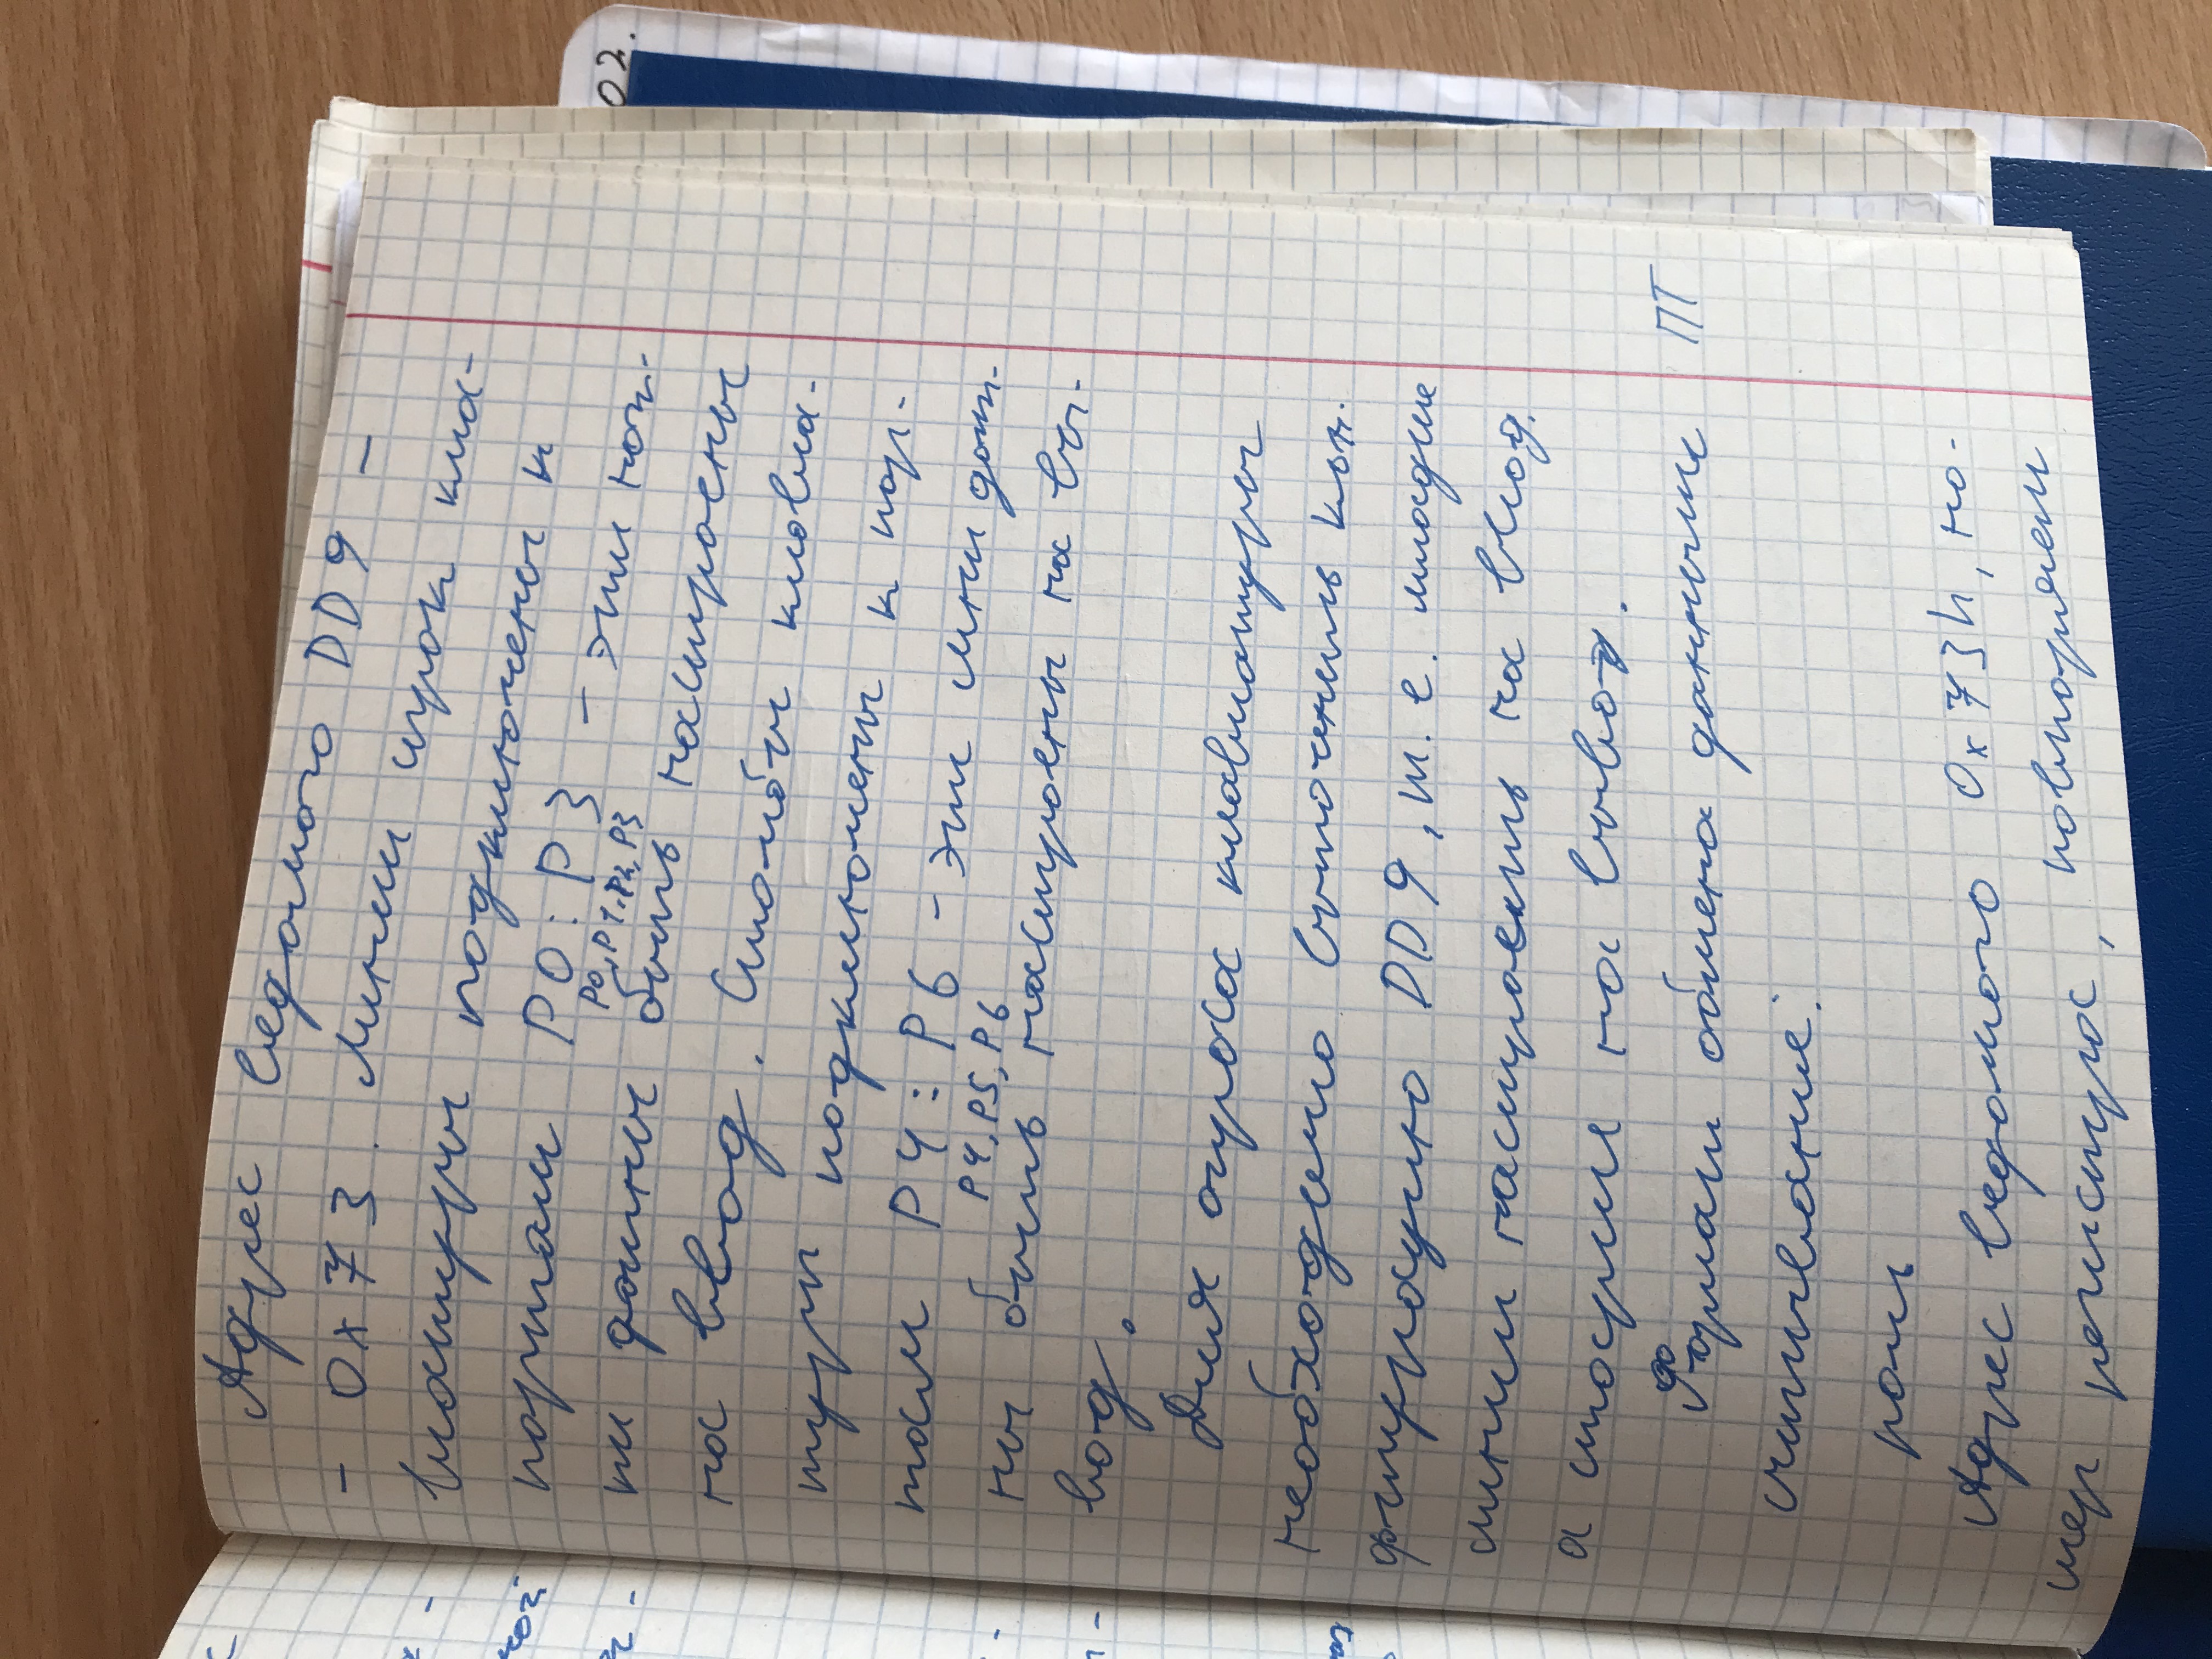 Адрес ведомого DD9 –
– 0x73. Линии строк кла-
виатуры подключены к
портам P0:P3 – эти нож-
P0, P1, P2, P3
ки должны быть настроены
на ввод. Столбы клавиа-
туры подключены к пор-
там P4:P6 – эти линии долж-
P4, P5, P6
ны быть настроены на вы-
вод.
Для опроса клавиатуры
необходимо выполнить кон-
фигурацию DD9, т. е. младшие
линии настроить на вход,
а старшие на вывод.
Формат обмена данными ПТ
считывания:
роль
Адрес ведомого 0x73h, но-
мер регистра, повторяем
02.